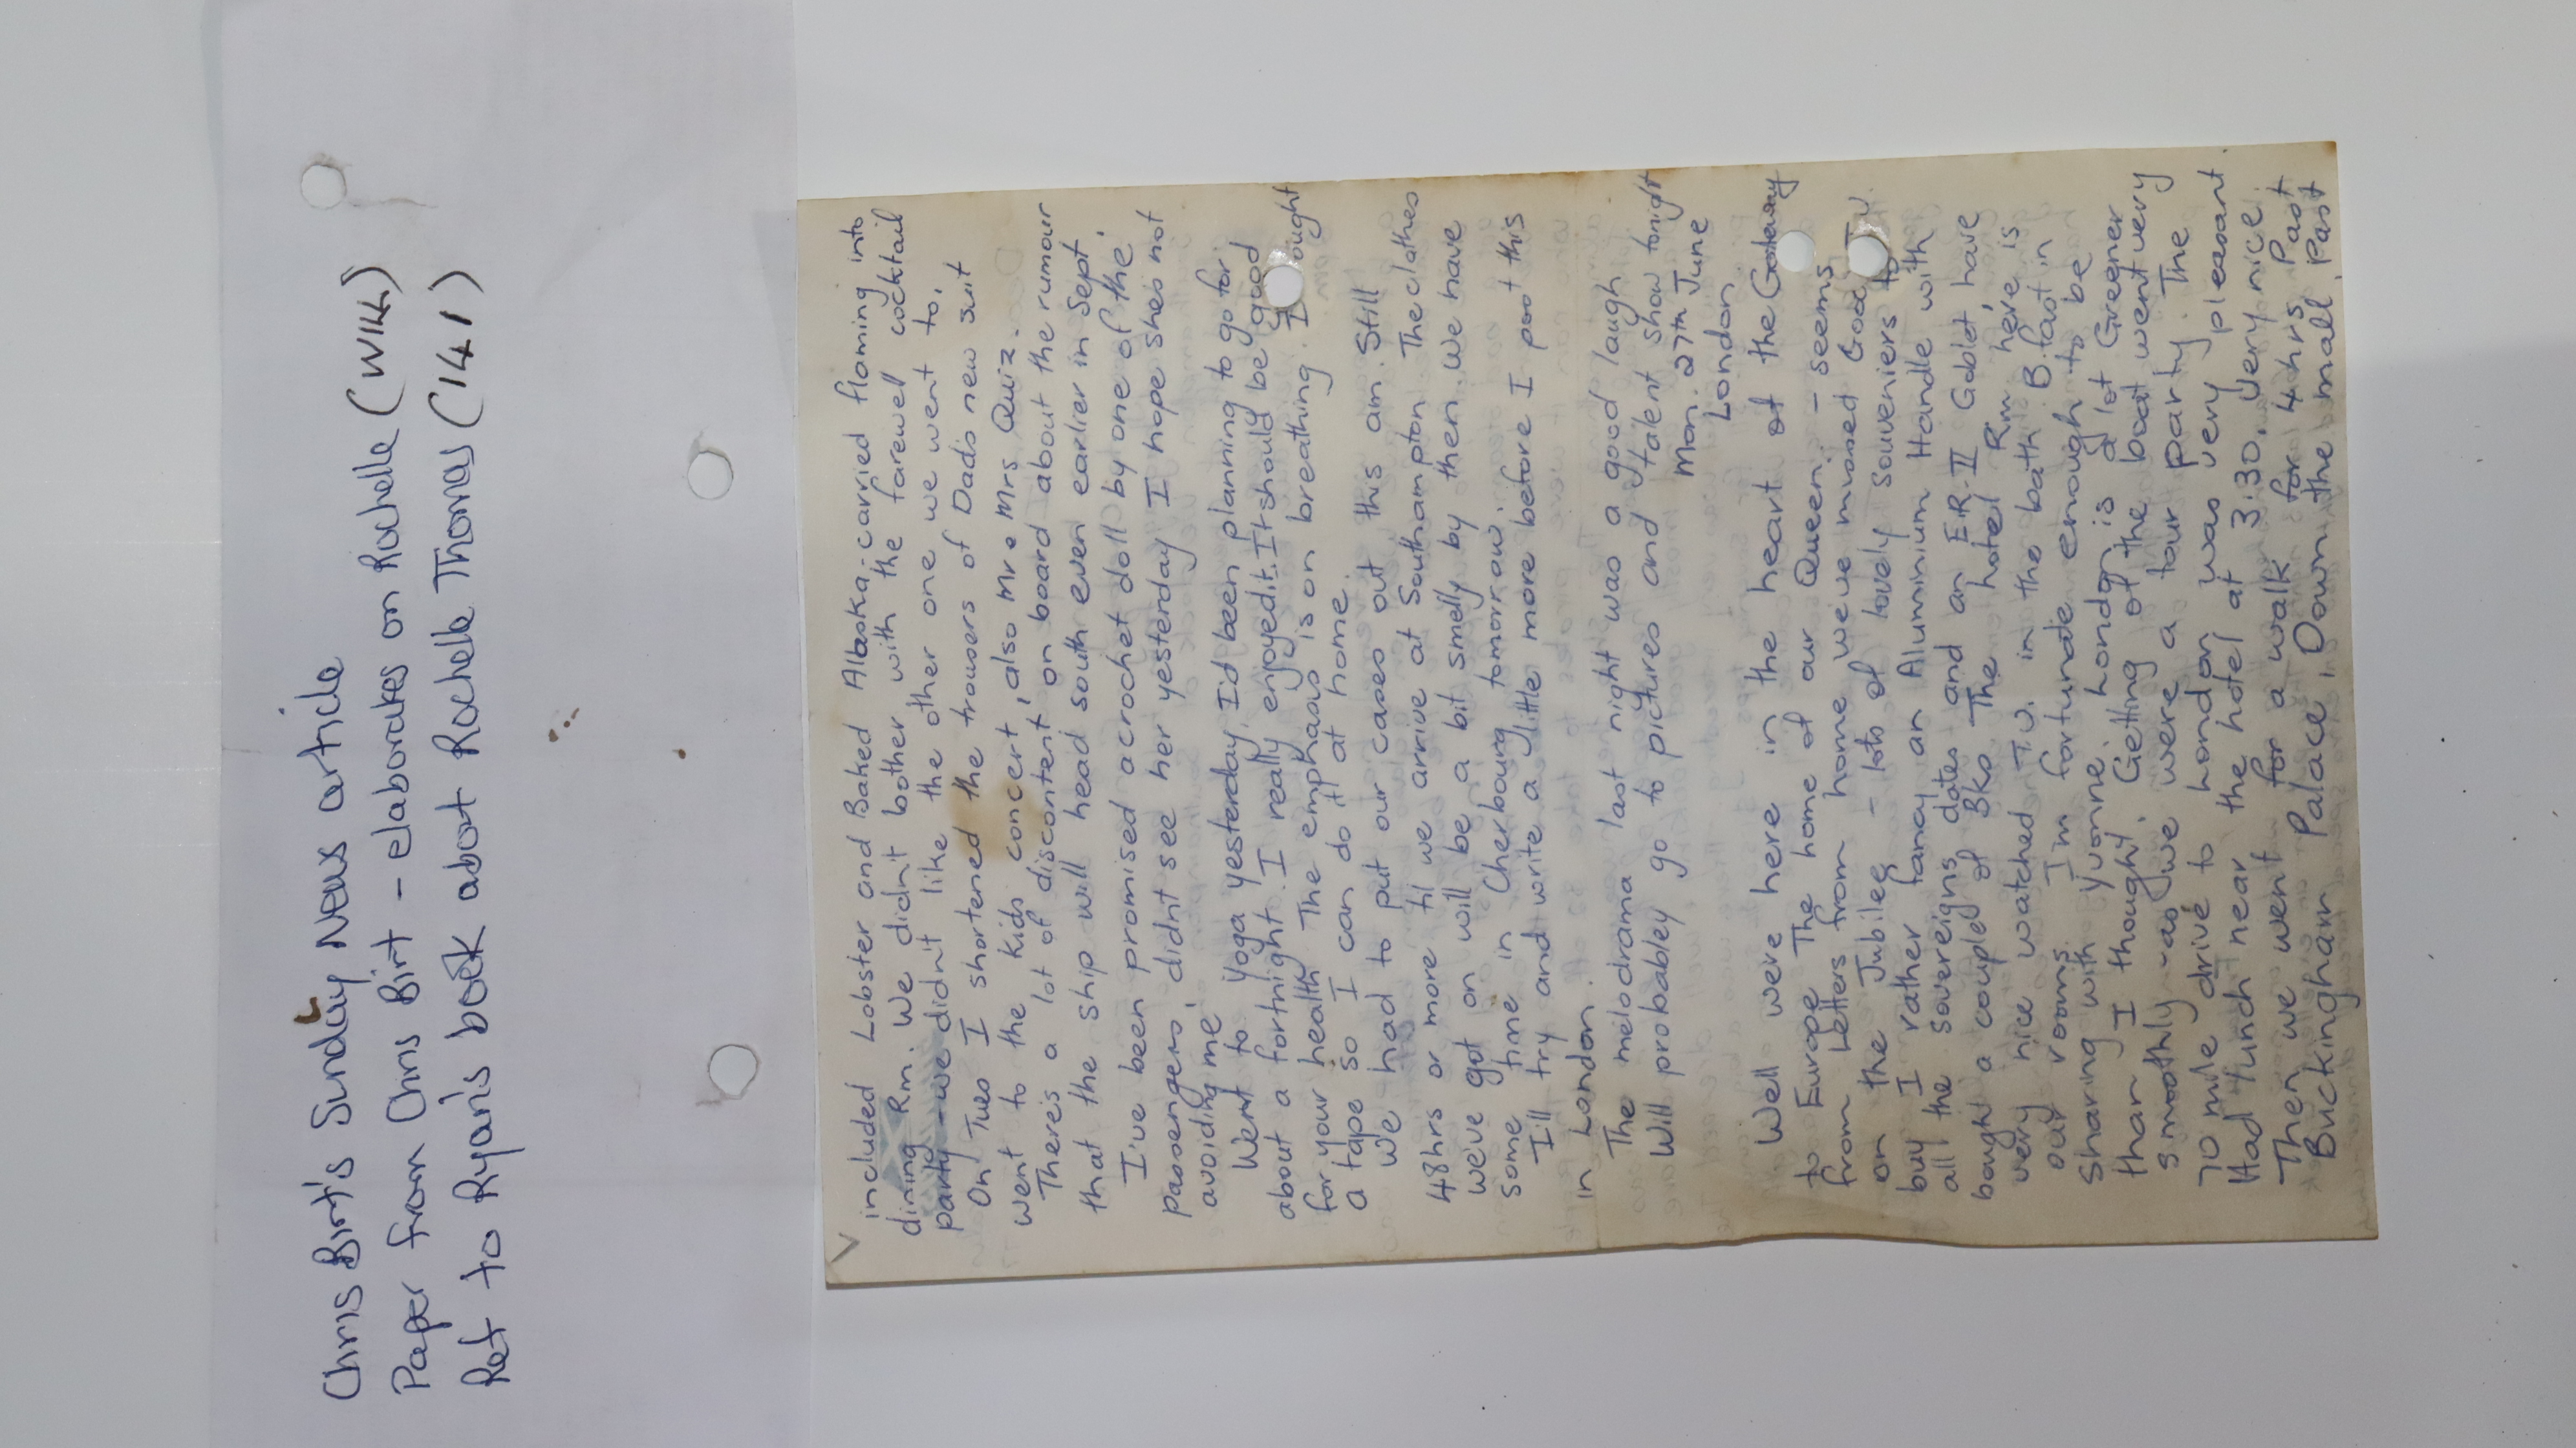 Chris Birt's Sunday News article
Paper from Chris Birt - elaborates on Rochelle (W14)
Ref to Ryan's book about Rochelle Thomas (141)
included Lobster and Baked Albaska - carried flaming into
dining Rm. We didn't bother with the farewell cocktail
party - we didn't like the other one we went to.
On Tues I shortened the trousers of Dad's new suit
went to the kids concert, also Mr & Mrs Quiz.
Theres a lot of discontent on board about the rumour
that the ship will head south even earlier in Sept
I've been promised a crochet doll by one of the
passengers, didnt see her yesterday I hope shes not
avoiding me.
Went to Yoga yesterday, I'd been planning to go for
about a fortnight. I really enjoyed it. It should be good
for your health. The emphasis is on breathing. I
a tape so I can do it at home.
We had to put our cases out this am. Still
48hrs or more til we arrive at Southampton. The clothes
we've got on will be a bit smelly by then. We have
some time in Cherbourg tomorrow.
I'll try and write a little more before I post this
in London.
The melodrama last night was a good laugh
Will probabley go to pictures and talent show tonight
Mon. 27th June
London.
Well were here in the heart of the Gateway
to Europe. The home of our Queen. - seems
from Letters from home we've missed Good T.V.
on the Jubilee - lots of lovely souveniers to
buy I rather fancy an Aluminium Handle with
all the sovereigns dates and an E.R. II Goblet, have
bought a couple of Bks. The hotel Rm here is
very nice watched T.V. in the bath. B.fast in
our rooms. I'm fortunate enough to be
sharing with Yvonne. London is a lot Greener
than I thought. Getting off the boat went very
smoothly - as we were a tour party. The
70 mile drive to London was very pleasant
Had lunch near the hotel at 3.30. Very nice.
Then we went for a walk for 4hrs. Past
Buckingham Palace, Down the mall, Past